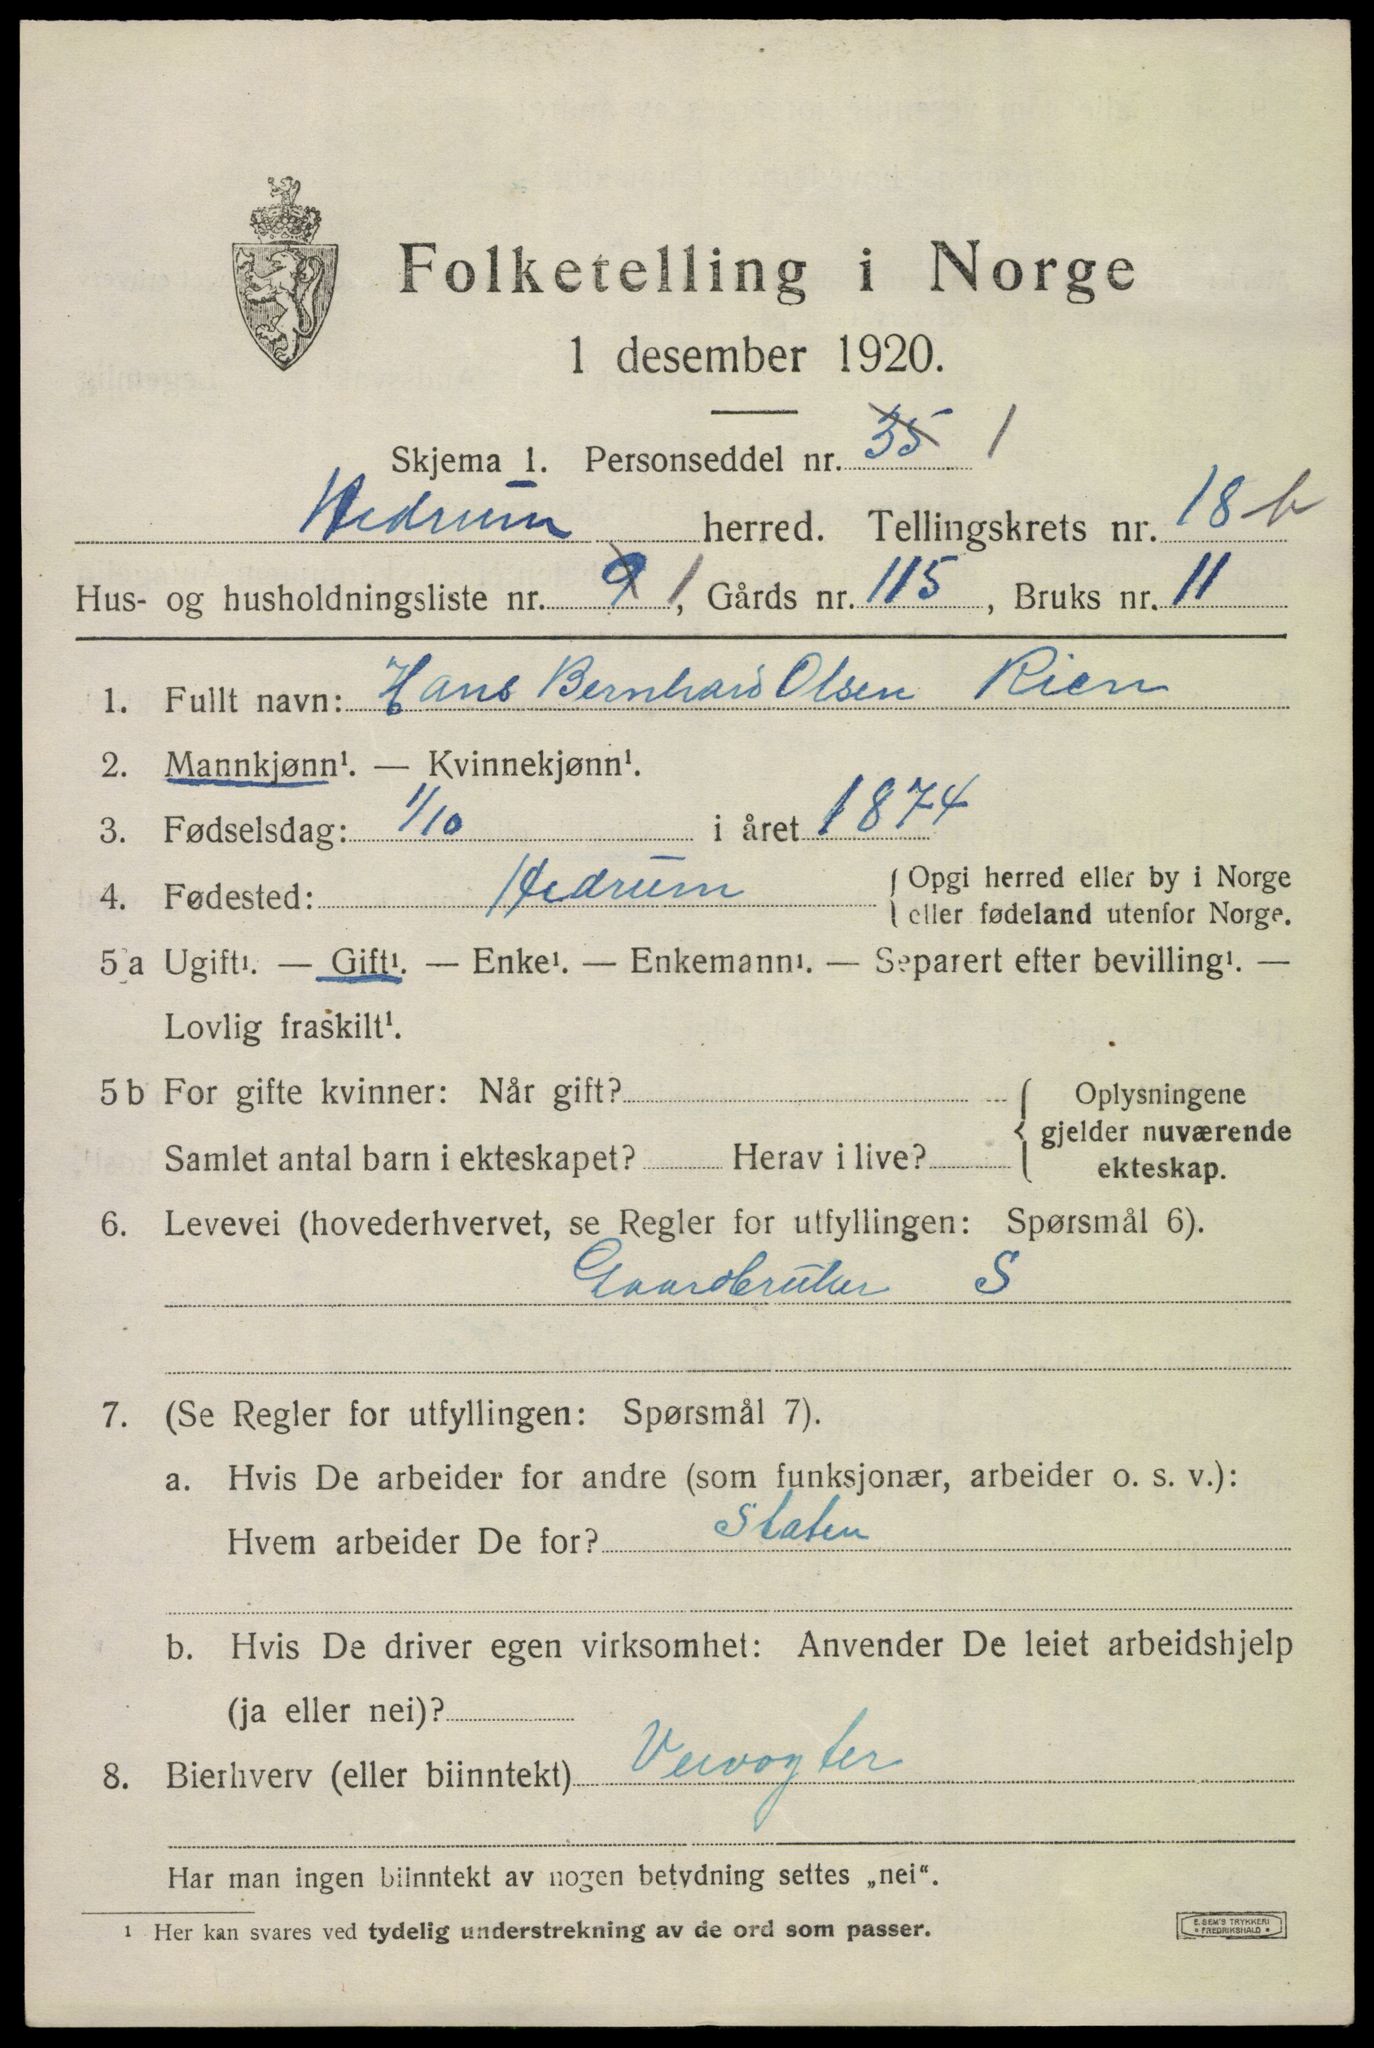 Folketelling i Norge
1 desember 1920.
Skjema 1. Personseddel nr. 35 1
Hedrum herred. Tellingskrets nr. 18 b
Hus- og husholdningsliste nr. 9 1, Gårds nr. 115, Bruks nr. 11
1. Fullt navn: Hans Bernhard Olsen Rien
2. Mannkjønn¹. — Kvinnekjønn¹.
3. Fødselsdag: 1/10 i året 1874
4. Fødested: Hedrum { Opgi herred eller by i Norge
eller fødeland utenfor Norge.
5 a Ugift¹. — Gift¹. — Enke¹. — Enkemann¹. — Separert efter bevilling¹. —
Lovlig fraskilt¹.
5 b For gifte kvinner: Når gift?
Samlet antal barn i ekteskapet? Herav i live?
{ Oplysningene
gjelder nuværende
ekteskap.
6. Levevei (hovederhvervet, se Regler for utfyllingen: Spørsmål 6).
Gaardbruker S
7. (Se Regler for utfyllingen: Spørsmål 7).
a. Hvis De arbeider for andre (som funksjonær, arbeider o. s. v.):
Hvem arbeider De for? Staten
b. Hvis De driver egen virksomhet: Anvender De leiet arbeidshjelp
(ja eller nei)?
8. Bierhverv (eller biinntekt) Veivogter
Har man ingen biinntekt av nogen betydning settes „nei“.
¹ Her kan svares ved tydelig understrekning av de ord som passer.
E. SEM'S TRYKKERI
• FREDRIKSHALD •